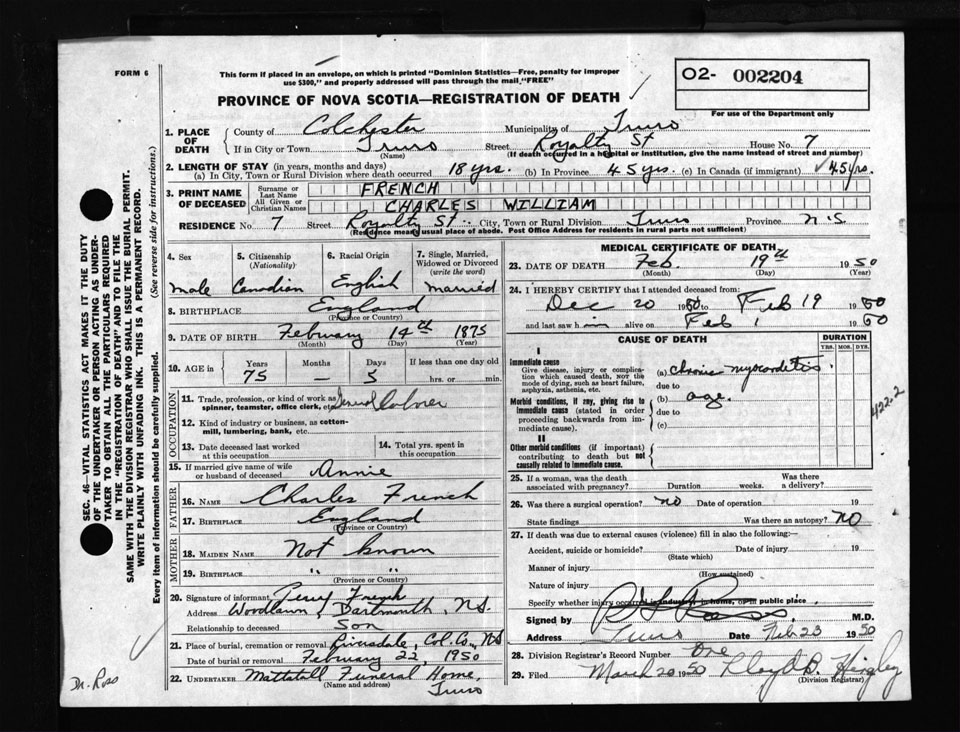 FORM 6
This form if placed in an envelope, on which is printed "Dominion Statistics—Free, penalty for improper
use $300," and properly addressed will pass through the mail "FREE"
PROVINCE OF NOVA SCOTIA—REGISTRATION OF DEATH
O2- 002204
For use of the Department only
1. PLACE OF DEATH
County of Colchester Municipality of Truro
If in City or Town Truro Street Royalty St House No. 7
(Name) (If death occurred in a hospital or institution, give the name instead of street and number)
2. LENGTH OF STAY (in years, months and days)
(a) In City, Town or Rural Division where death occurred 18 yrs. (b) In Province 45 yrs. (c) In Canada (if immigrant) 45 yrs.
3. PRINT NAME OF DECEASED
Surname or Last Name FRENCH
All Given or Christian Names CHARLES WILLIAM
RESIDENCE No. 7 Street Royalty St City, Town or Rural Division Truro Province N.S
(Residence means usual place of abode. Post Office Address for residents in rural parts not sufficient)
4. Sex 5. Citizenship (Nationality) 6. Racial Origin 7. Single, Married, Widowed or Divorced (write the word)
male Canadian English married
8. BIRTHPLACE England
(Province or Country)
9. DATE OF BIRTH February 14th 1875
(Month) (Day) (Year)
10. AGE in Years Months Days If less than one day old
75 — 5 hrs. or min.
OCCUPATION
11. Trade, profession, or kind of work as spinner, teamster, office clerk, etc. General Labourer
12. Kind of industry or business, as cotton-mill, lumbering, bank, etc.
13. Date deceased last worked at this occupation
14. Total yrs. spent in this occupation
15. If married give name of wife or husband of deceased Annie
FATHER
16. NAME Charles French
17. BIRTHPLACE England
(Province or Country)
MOTHER
18. MAIDEN NAME Not known
19. BIRTHPLACE " "
(Province or Country)
20. Signature of informant French
Address Woodlawn, Dartmouth, N.S.
Relationship to deceased Son
21. Place of burial, cremation or removal Riversdale, Col. Co., N.S
Date of burial or removal February 22, 1950
22. UNDERTAKER Mattatall Funeral Home,
(Name and address) Truro
MEDICAL CERTIFICATE OF DEATH
23. DATE OF DEATH Feb. 19th 1950
(Month) (Day) (Year)
24. I HEREBY CERTIFY that I attended deceased from:
Dec 20 to Feb 19 1950
and last saw him alive on Feb 1 1950
CAUSE OF DEATH
DURATION
YRS. MOS. DYS.
I
Immediate cause
Give disease, injury or complication which caused death, not the mode of dying, such as heart failure, asphyxia, asthenia, etc.
(a) chronic myocarditis
due to
Morbid conditions, if any, giving rise to immediate cause (stated in order proceeding backwards from immediate cause).
(b) age.
due to
(c)
422.2
II
Other morbid conditions (if important) contributing to death but not causally related to immediate cause.
25. If a woman, was the death associated with pregnancy? Duration weeks. Was there a delivery?
26. Was there a surgical operation? no Date of operation 19
State findings Was there an autopsy? NO
27. If death was due to external causes (violence) fill in also the following:—
Accident, suicide or homicide? Date of injury 19
(State which)
Manner of injury
(How sustained)
Nature of injury
Specify whether injury occurred in industry, in home, or in public place
Signed by Ross M.D.
Address Truro Date Feb 23 1950
28. Division Registrar's Record Number One
29. Filed March 20 1950 Lloyd
(Division Registrar)
SEC. 46—VITAL STATISTICS ACT MAKES IT THE DUTY
OF THE UNDERTAKER OR PERSON ACTING AS UNDER-
TAKER TO OBTAIN ALL THE PARTICULARS REQUIRED
IN THE "REGISTRATION OF DEATH" AND TO FILE THE
SAME WITH THE DIVISION REGISTRAR WHO SHALL ISSUE THE BURIAL PERMIT.
WRITE PLAINLY WITH UNFADING INK. THIS IS A PERMANENT RECORD.
Every item of information should be carefully supplied. (See reverse side for instructions.)
Dr. Ross